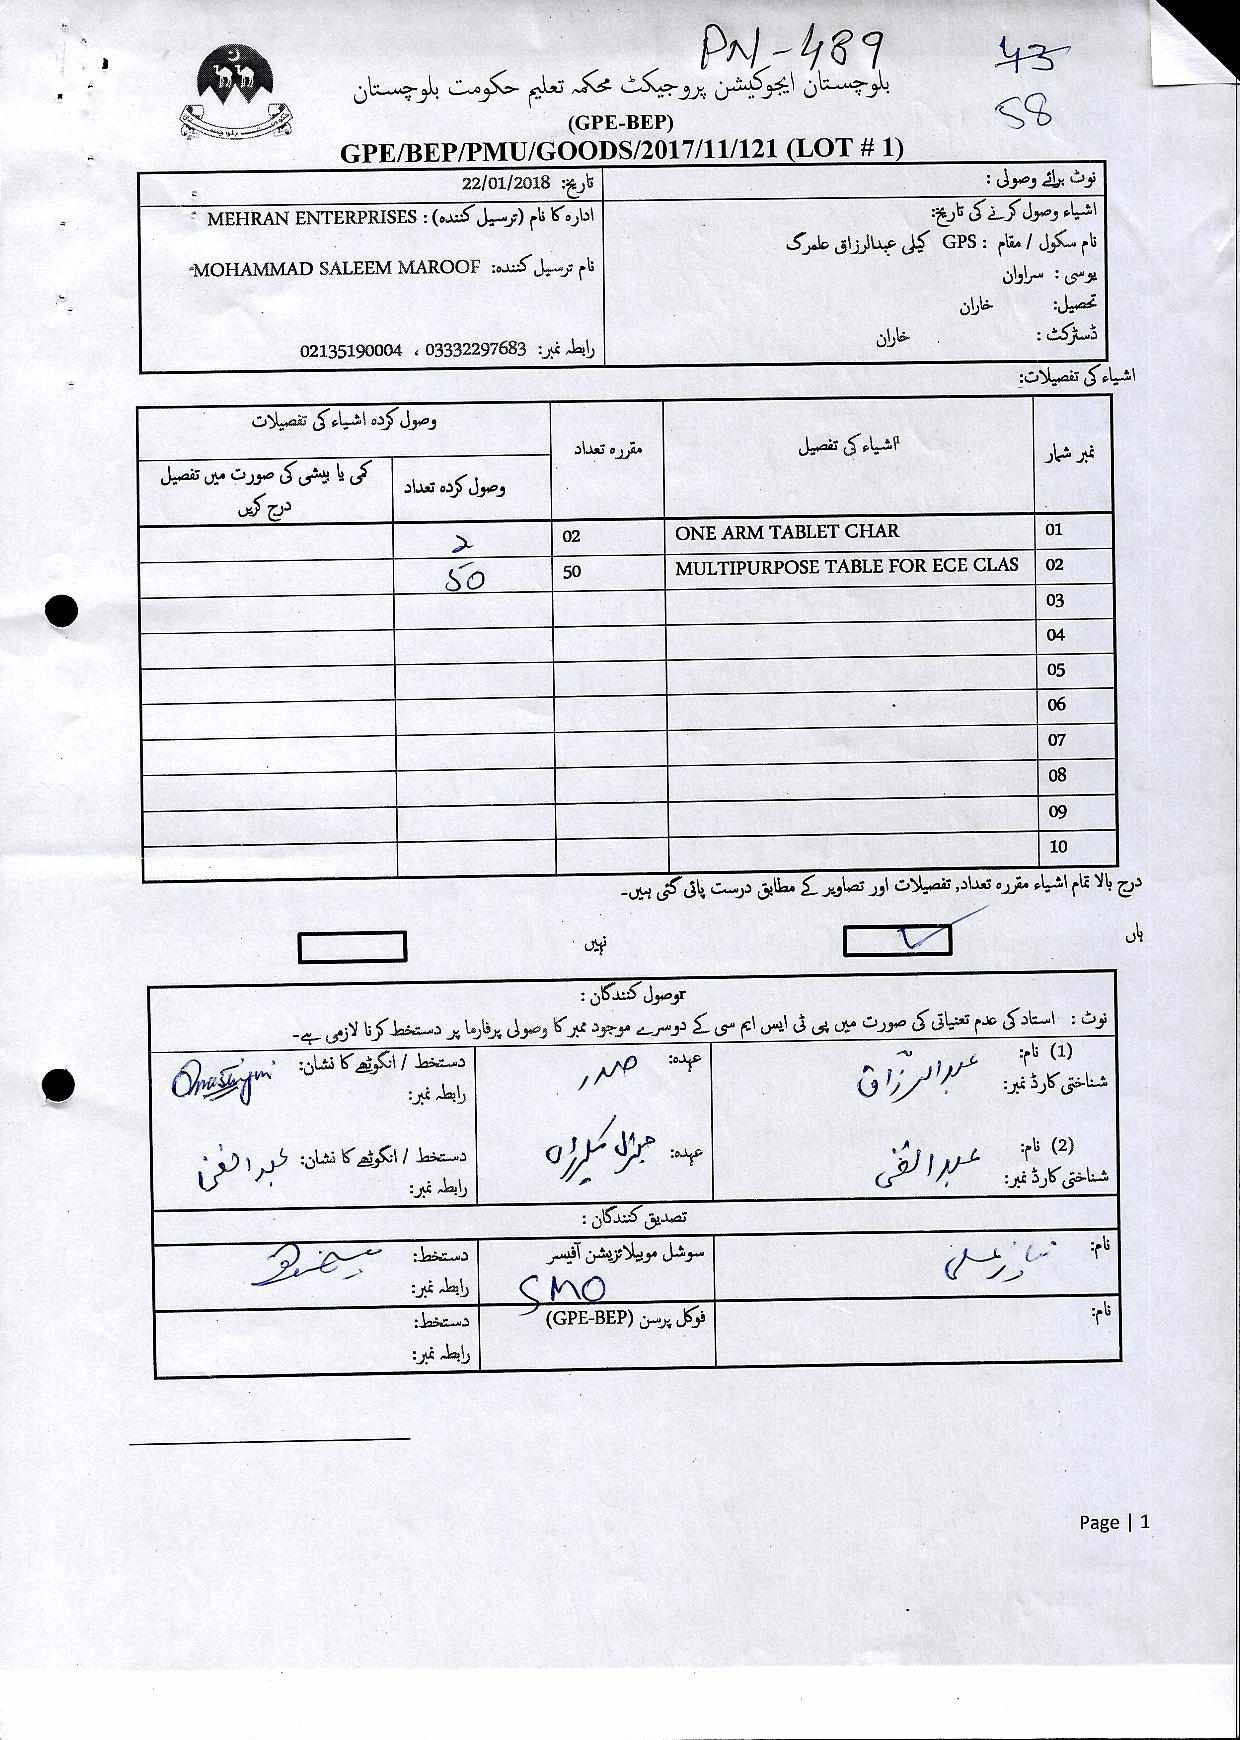 PN-489
43
58
بلوچستان ایجوکیشن پروجیکٹ محکمہ تعلیم حکومت بلوچستان
(GPE-BEP)
GPE/BEP/PMU/GOODS/2017/11/121 (LOT # 1)
نوٹ برائے وصولی :
تاریخ: 22/01/2018
اشیاء وصول کرنے کی تاریخ:
نام سکول / مقام : GPS کیلی عبدالرزاق علمرگ
یوسی : سراوان
تحصیل: خاران
ڈسٹرکٹ : خاران
ادارہ کا نام (ترسیل کنندہ) : MEHRAN ENTERPRISES
نام ترسیل کنندہ: MOHAMMAD SALEEM MAROOF
رابطہ نمبر: 03332297683 ، 02135190004
اشیاء کی تفصیلات:
نمبر شمار اشیاء کی تفصیل مقررہ تعداد وصول کردہ اشیاء کی تفصیلات
وصول کردہ تعداد کمی یا بیشی کی صورت میں تفصیل درج کریں
01 ONE ARM TABLET CHAR 02 2
02 MULTIPURPOSE TABLE FOR ECE CLAS 50 50
03
04
05
06
07
08
09
10
درج بالا تمام اشیاء مقررہ تعداد, تفصیلات اور تصاویر کے مطابق درست پائی گئی ہیں۔
ہاں نہیں
وصول کنندگان :
نوٹ : استاد کی عدم تعیناتی کی صورت میں پی ٹی ایس ایم سی کے دوسرے موجود ممبر کا وصولی پرفارما پر دستخط کرنا لازمی ہے۔
(1) نام: عبدالرزاق عہدہ: صدر دستخط / انگوٹھے کا نشان:
شناختی کارڈ نمبر: رابطہ نمبر:
(2) نام: عبدالغنی عہدہ: جنرل سکرٹری دستخط / انگوٹھے کا نشان: عبدالغنی
شناختی کارڈ نمبر: رابطہ نمبر:
تصدیق کنندگان :
نام: سوشل موبیلائزیشن آفیسر دستخط:
SMO رابطہ نمبر:
نام: فوکل پرسن (GPE-BEP) دستخط:
رابطہ نمبر:
Page | 1